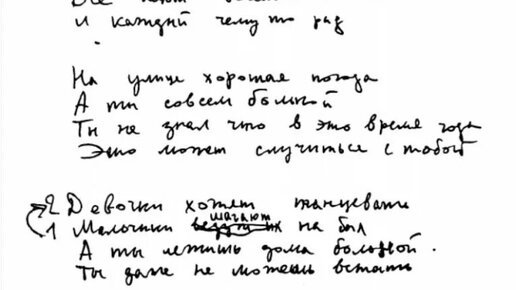 и каждый чему то рад
На улице хорошая погода
А ты совсем больной
Ты не знал что в это время года
Это может случиться с тобой
2 Девочки хотят танцевать
шагают
1 Мальчики на бал
А ты лежишь дома больной.
Ты даже не можешь встать